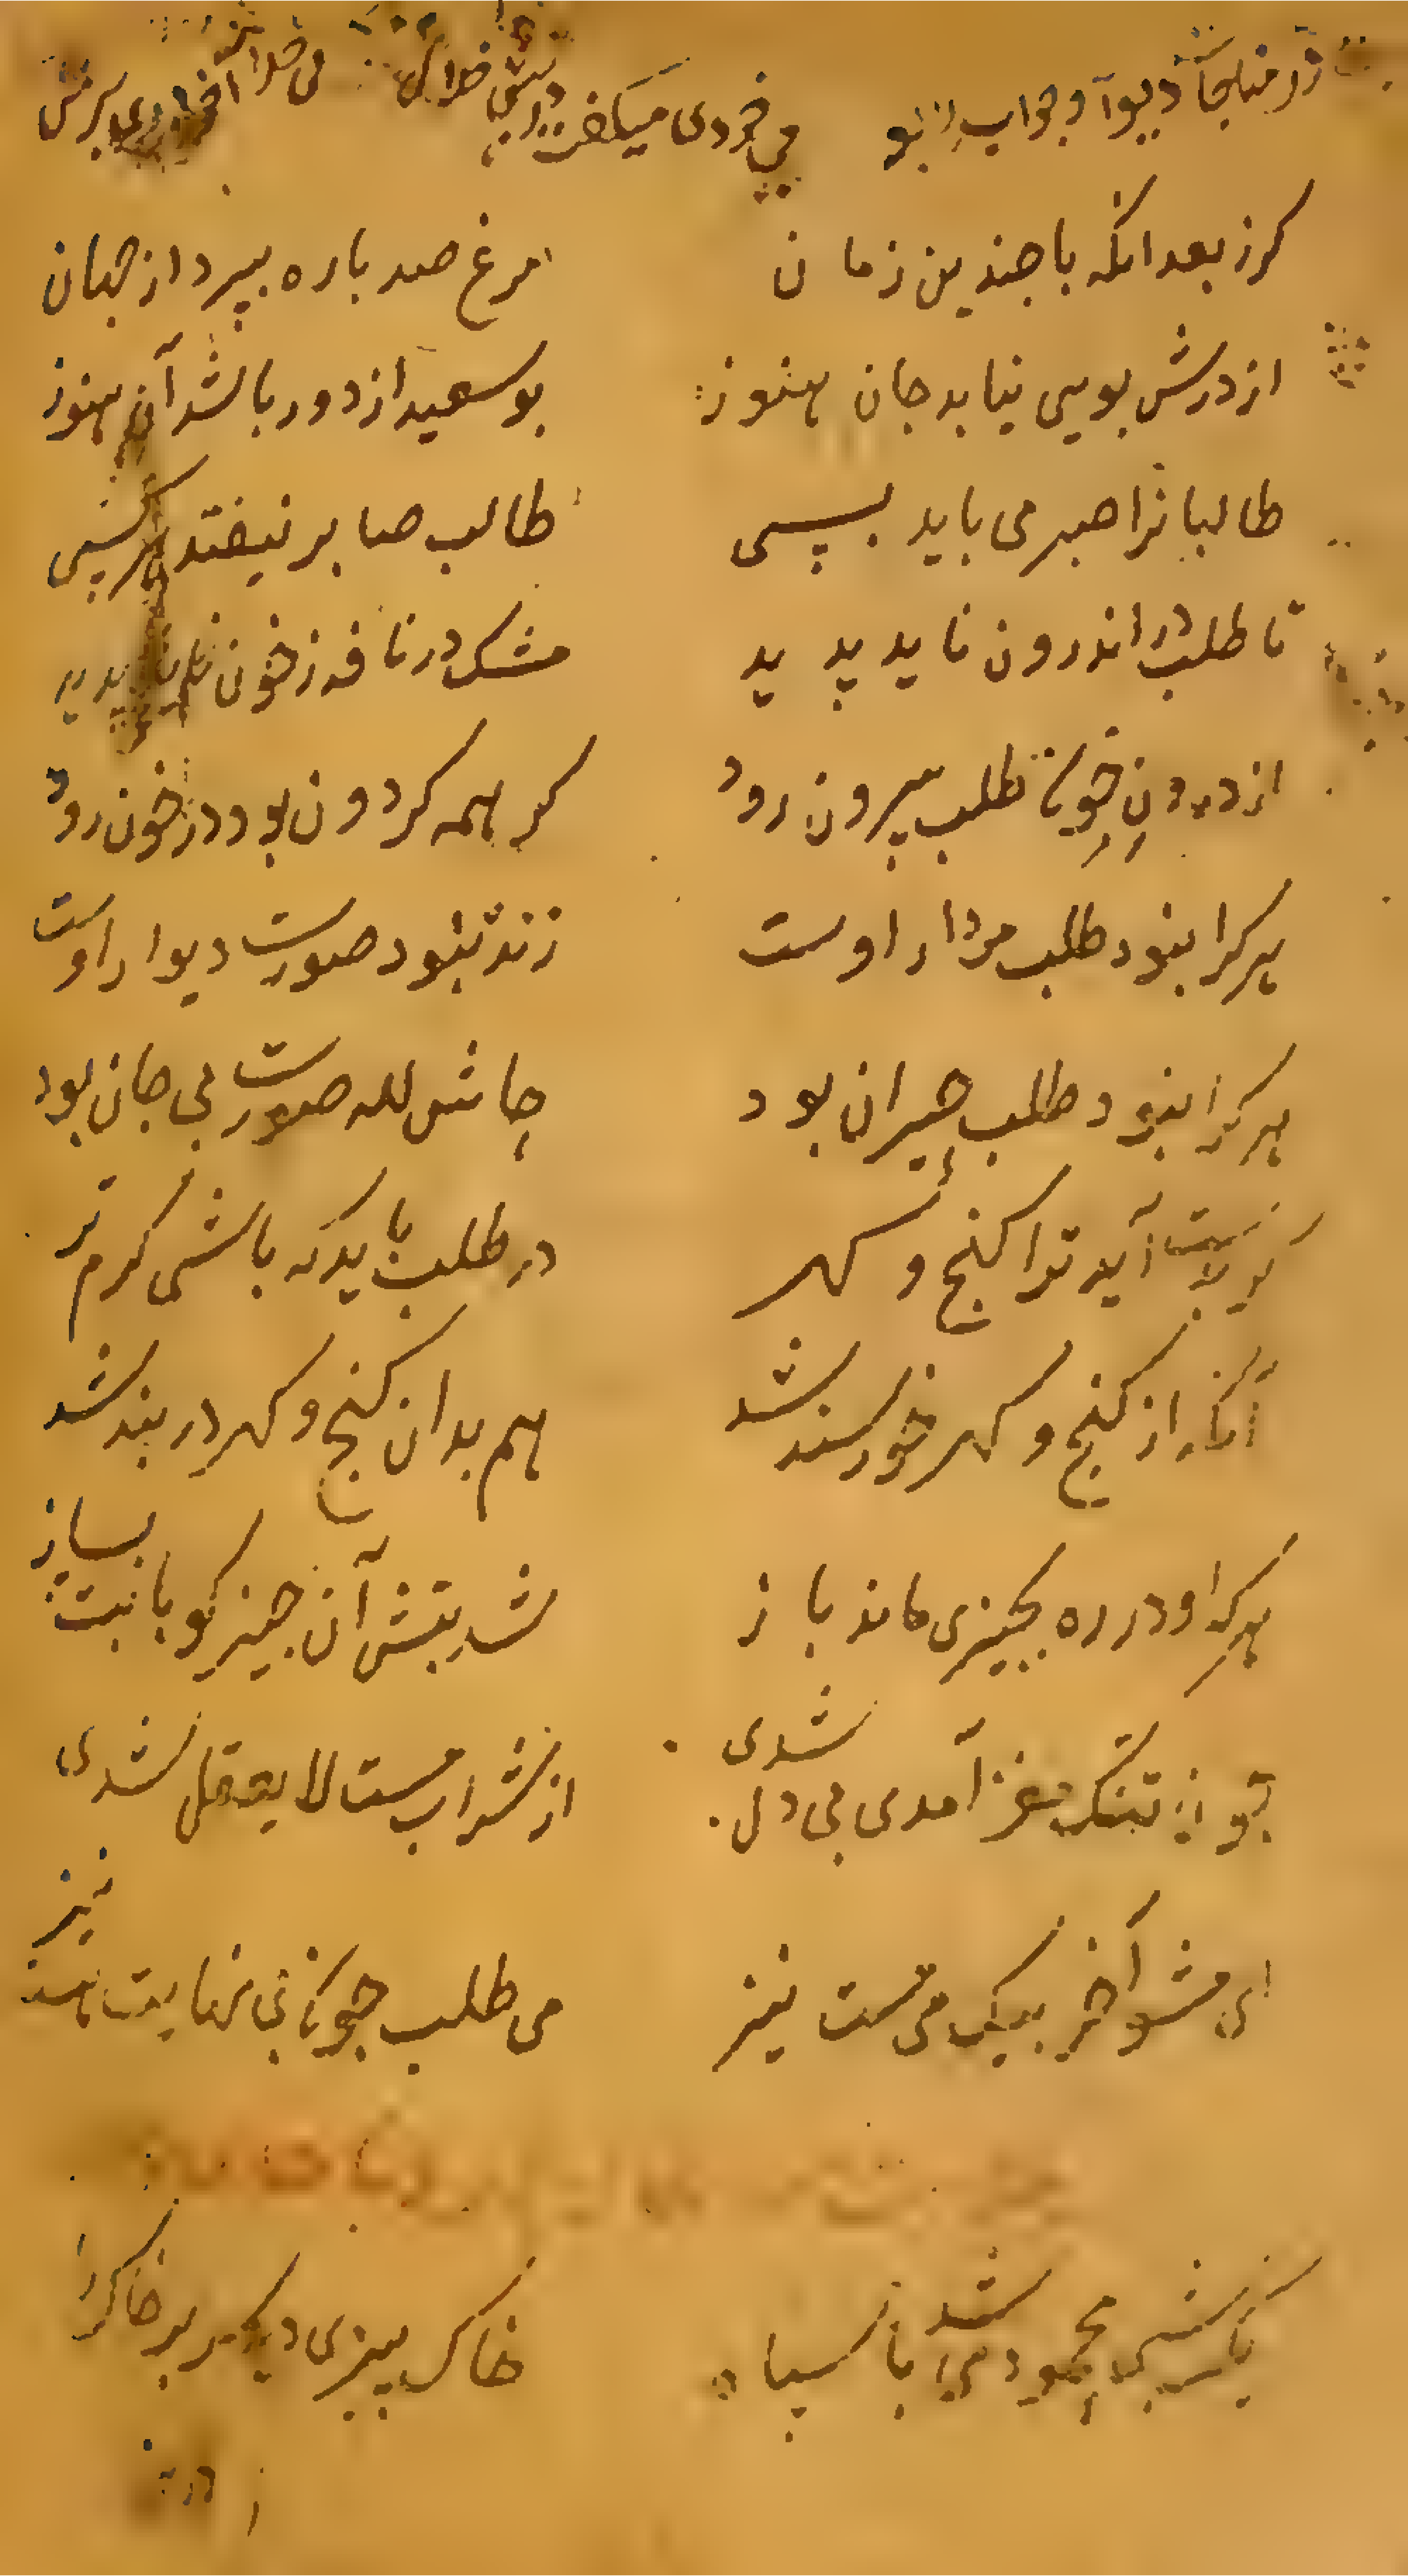 می خودی میگفت در پیش خدای
گر ز بعد انکه با چندین زمان
مرغ صد باره بپرد از جهان
از درش بویی نیابد جان هنوز
بو سعید از دور باشد آن هنوز
طالبانرا صبر می باید بسی
طالب صابر نیفتد هر کسی
تا طلب در اندرون ناید پدید
مشک در نافه ز خون ناید پدید
از درون چونکه طلب بیرون رود
گر همه گردون بود در خون رود
هر کرا نبود طلب مردار اوست
زنده نبود صورت دیوار اوست
هر کرا نبود طلب حیران بود
حاش لله صورت بی جان بود
آید ترا گنج و گهر
در طلب باید که باشی گرم تر
آنکه از گنج و گهر خورسند شد
هم بدان گنج و گهر در بند شد
هر که او در ره بچیزی ماند باز
شد بتش آن چیز گو با بت بساز
چون تنک مغز آمدی بی دل شدی
از شراب مست لا یعقل شدی
می مشو آخر بیک می مست نیز
می طلب چونکه بی نهایت هست نیز
یک شبی محمود می شد با سپاه
خاک بیزی دید سر بر خاک را